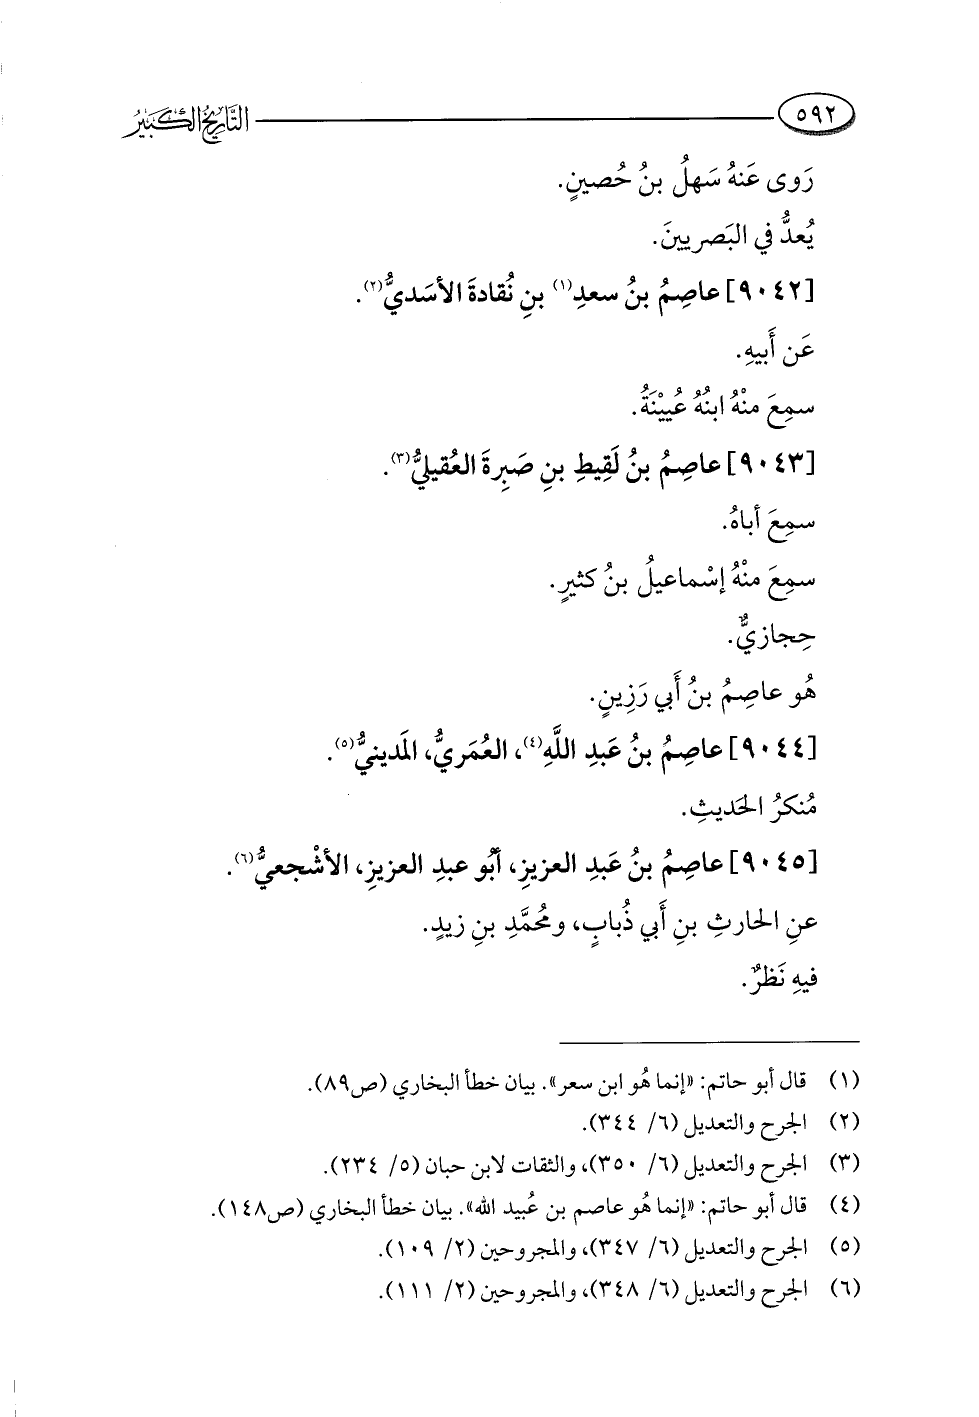 ٥٩٢ التَّارِيخُ الكَبِيرُ
رَوى عَنهُ سَهلُ بنُ حُصينٍ.
يُعدُّ في البَصريينَ.
[٩٠٤٢] عاصِمُ بنُ سعدِ(١) بنِ نُقادةَ الأسَديُّ(٢).
عَن أَبيهِ.
سمِعَ منْهُ ابنُهُ عُيينَةُ.
[٩٠٤٣] عاصِمُ بنُ لَقِيطِ بنِ صَبِرةَ العُقيليُّ(٣).
سمِعَ أباهُ.
سمِعَ منْهُ إسْماعيلُ بنُ كثيرٍ.
حِجازيٌّ.
هُو عاصِمُ بنُ أَبي رَزِينٍ.
[٩٠٤٤] عاصِمُ بنُ عَبدِ اللَّهِ(٤)، العُمَريُّ، المَدينيُّ(٥).
مُنكرُ الحَديثِ.
[٩٠٤٥] عاصِمُ بنُ عَبدِ العزيزِ، أبُو عبدِ العزيزِ، الأشْجعيُّ(٦).
عنِ الحارثِ بنِ أَبي ذُبابٍ، ومُحمَّدِ بنِ زيدٍ.
فيهِ نَظرٌ.
(١) قال أبو حاتم: «إنما هُو ابن سعر». بيان خطأ البخاري (ص٨٩).
(٢) الجرح والتعديل (٦/ ٣٤٤).
(٣) الجرح والتعديل (٦/ ٣٥٠)، والثقات لابن حبان (٥/ ٢٣٤).
(٤) قال أبو حاتم: «إنما هُو عاصم بن عُبيد الله». بيان خطأ البخاري (ص١٤٨).
(٥) الجرح والتعديل (٦/ ٣٤٧)، والمجروحين (٢/ ١٠٩).
(٦) الجرح والتعديل (٦/ ٣٤٨)، والمجروحين (٢/ ١١١).